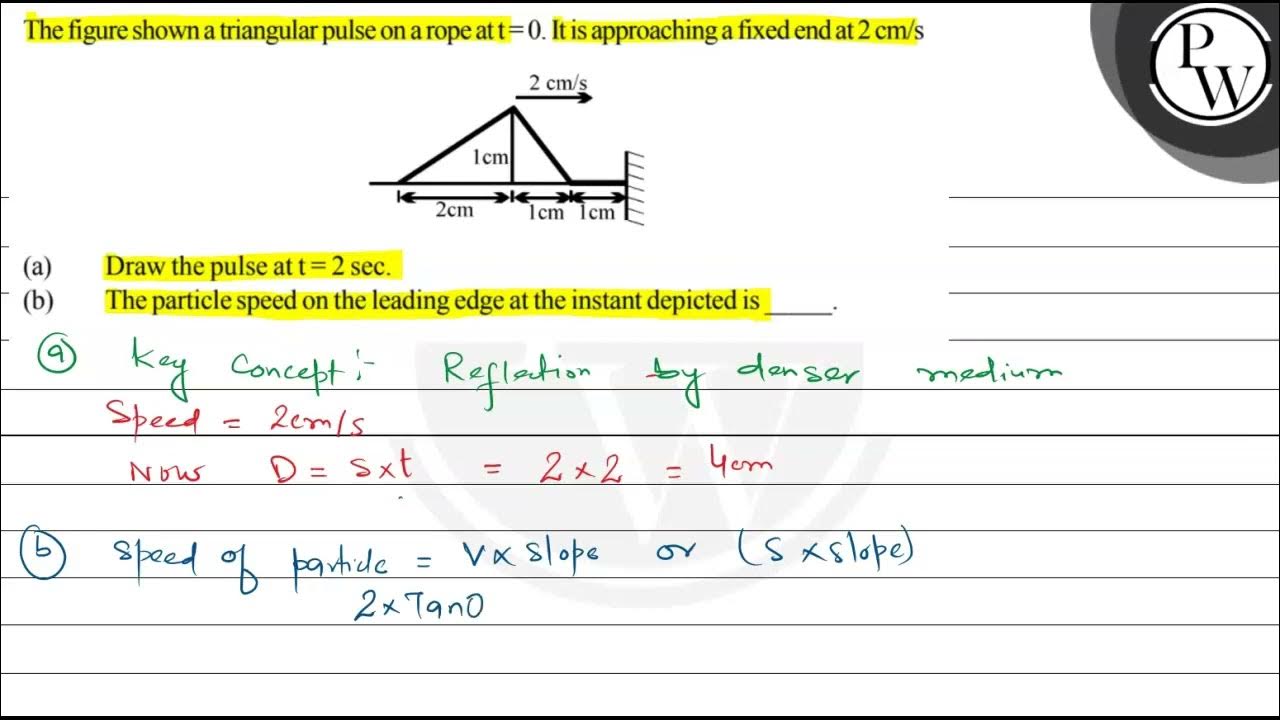 The figure shown a triangular pulse on a rope at t = 0. It is approaching a fixed end at 2 cm/s
P
W
2 cm/s
1cm
2cm
1cm
1cm
(a) Draw the pulse at t = 2 sec.
(b) The particle speed on the leading edge at the instant depicted is _____.
(a) Key Concept:- Reflection by denser medium
Speed = 2cm/s
Now D = s×t = 2×2 = 4cm
(b) Speed of particle = V×slope or (S×slope)
2×Tan0